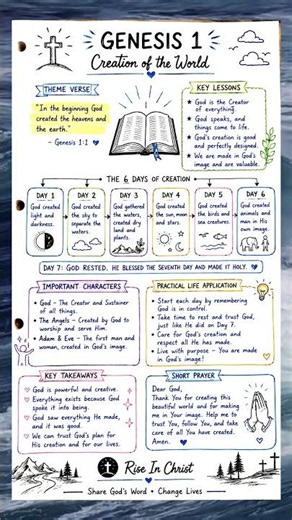 GENESIS 1
Creation of the World
THEME VERSE
"In the beginning God
created the heavens and
the earth."
- Genesis 1:1
KEY LESSONS
God is the Creator
of everything.
God speaks, and
things come to life.
God's creation is good
and perfectly designed.
We are made in God's
image and are valuable.
THE 6 DAYS OF CREATION
DAY 1
God created
light and
darkness.
DAY 2
God created
the sky to
separate the
waters.
DAY 3
God gathered
the waters,
created dry
land and
plants.
DAY 4
God created
the sun, moon
and stars.
DAY 5
God created
the birds and
sea creatures.
DAY 6
God created
animals and
man in His
own image.
DAY 7: GOD RESTED. HE BLESSED THE SEVENTH DAY AND MADE IT HOLY.
IMPORTANT CHARACTERS
• God – The Creator and Sustainer
of all things.
• The Angels – Created by God to
worship and serve Him.
• Adam & Eve – The first man and
woman, created in God's image.
PRACTICAL LIFE APPLICATION
• Start each day by remembering
God is in control.
• Take time to rest and trust God,
just like He did on Day 7.
• Care for God's creation and
respect all He has made.
• Live with purpose – You are made
in God's image!
KEY TAKEAWAYS
God is powerful and creative.
Everything exists because God
spoke it into being.
God saw everything He made,
and it was good.
We can trust God's plan for
His creation and for our lives.
SHORT PRAYER
Dear God,
Thank You for creating this
beautiful world and for making
me in Your image. Help me to
trust You, follow You, and take
care of all You have created.
Amen.
Rise In Christ
Share God's Word • Change Lives